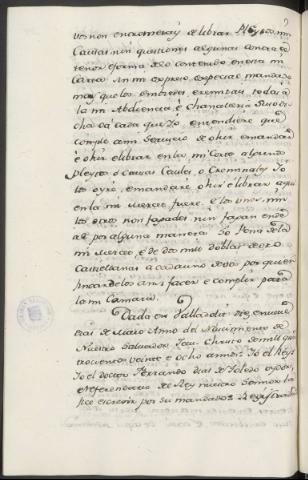 vos non entrometays de librar Pleytos nin
Causas nin questiones algunas contra el
tenor e forma de lo contenido en esta mi
Carta sin mi expreso, e special mandado
mas que los embiedes, e remitais todos à
la mi Abdiencia è Chancilleria Suso di-
cha ca cada que Yo, entendiere que
cumple à mi Servicio de ohir e mandar
è ohir e librar en la mi Corte algunos
Pleytos ò Causas Ceviles, ò Criminales Yo
los oyrè, e mandarè ohir è librar à quien
en la mi Merced fuere. E los unos, nin
los otros non fagades, nin fagan ende
al por alguna manera Só Pena de la
mi Merced, e de dos mil doblas de oro
Castellanas à cada uno de vos por quien
fincare de los ansi facer e complir para
la mi Camara.
Dada en Valladolid diez, e nueve
dias de Marzo Anno del Nacimiento de
Nuestro Salvador Jesu Christo de mill qua-
trocientos veinte e ocho annos: Yo el Rey=
Yo el doctor Ferrando dias de Toledo oydor,
e Referendario del Rey nuestro Sennor la
fice escrevir por su mandado=